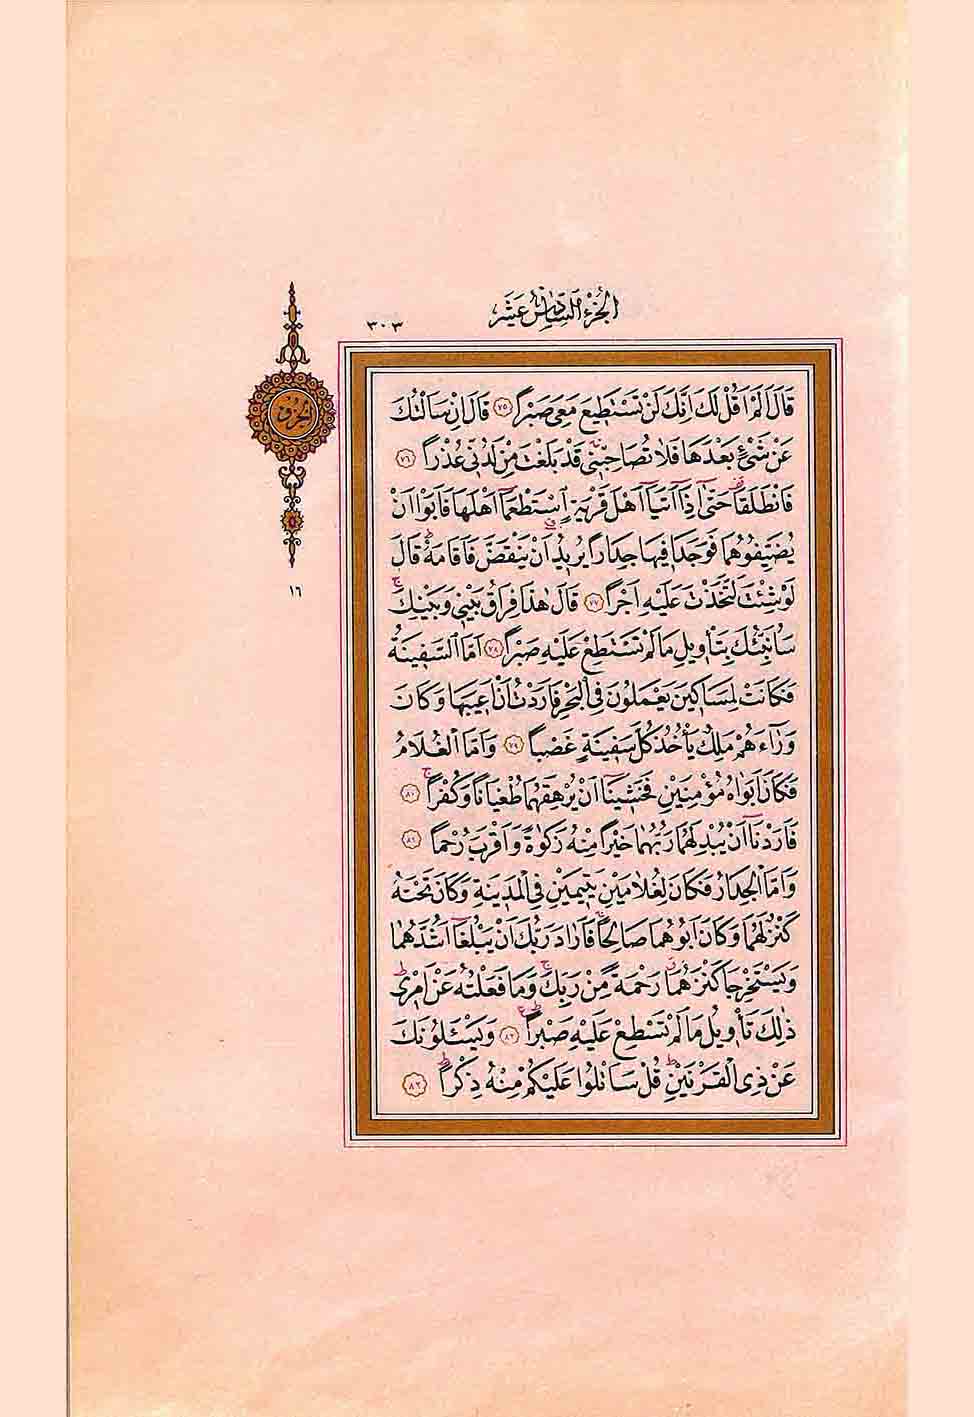 الجزء السادس عشر
٣٠٣
قَالَ اَلَمْ اَقُلْ لَكَ اِنَّكَ لَنْ تَسْتَطٖيعَ مَعِىَ صَبْرًا ﴿٧٥﴾ قَالَ اِنْ سَاَلْتُكَ
عَنْ شَیْءٍ بَعْدَهَا فَلَا تُصَاحِبْنٖى قَدْ بَلَغْتَ مِنْ لَدُنّٖى عُذْرًا ﴿٧٦﴾
فَانْطَلَقَا حَتّٰٓى اِذَٓا اَتَيَٓا اَهْلَ قَرْيَةٍ ۨاسْتَطْعَمَٓا اَهْلَهَا فَاَبَوْا اَنْ
يُضَيِّفُوهُمَا فَوَجَدَا فٖيهَا جِدَارًا يُرٖيدُ اَنْ يَنْقَضَّ فَاَقَامَهُؕ قَالَ
لَوْ شِئْتَ لَتَّخَذْتَ عَلَيْهِ اَجْرًا ﴿٧٧﴾ قَالَ هٰذَا فِرَاقُ بَيْنٖى وَبَيْنِكَۚ
سَاُنَبِّئُكَ بِتَاْوٖيلِ مَا لَمْ تَسْتَطِعْ عَلَيْهِ صَبْرًا ﴿٧٨﴾ اَمَّا السَّفٖينَةُ
فَكَانَتْ لِمَسَاكٖينَ يَعْمَلُونَ فِى الْبَحْرِ فَاَرَدْتُ اَنْ اَعٖيبَهَا وَكَانَ
وَرَٓاءَهُمْ مَلِكٌ يَاْخُذُ كُلَّ سَفٖينَةٍ غَصْبًا ﴿٧٩﴾ وَاَمَّا الْغُلَامُ
فَكَانَ اَبَوَاهُ مُؤْمِنَيْنِ فَخَشٖينَٓا اَنْ يُرْهِقَهُمَا طُغْيَانًا وَكُفْرًاۚ ﴿٨٠﴾
فَاَرَدْنَٓا اَنْ يُبْدِلَهُمَا رَبُّهُمَا خَيْرًا مِنْهُ زَكٰوةً وَاَقْرَبَ رُحْمًا ﴿٨١﴾
وَاَمَّا الْجِدَارُ فَكَانَ لِغُلَامَيْنِ يَتٖيمَيْنِ فِى الْمَدٖينَةِ وَكَانَ تَحْتَهُ
كَنْزٌ لَهُمَا وَكَانَ اَبُوهُمَا صَالِحًاۚ فَاَرَادَ رَبُّكَ اَنْ يَبْلُغَٓا اَشُدَّهُمَا
وَيَسْتَخْرِجَا كَنْزَهُمَا رَحْمَةً مِنْ رَبِّكَۚ وَمَا فَعَلْتُهُ عَنْ اَمْرٖىؕ
ذٰلِكَ تَاْوٖيلُ مَا لَمْ تَسْطِعْ عَلَيْهِ صَبْرًاؕ ﴿٨٢﴾ وَيَسْـَٔلُونَكَ
عَنْ ذِى الْقَرْنَيْنِؕ قُلْ سَاَتْلُوا عَلَيْكُمْ مِنْهُ ذِكْرًاؕ ﴿٨٣﴾
الجزؤ
١٦